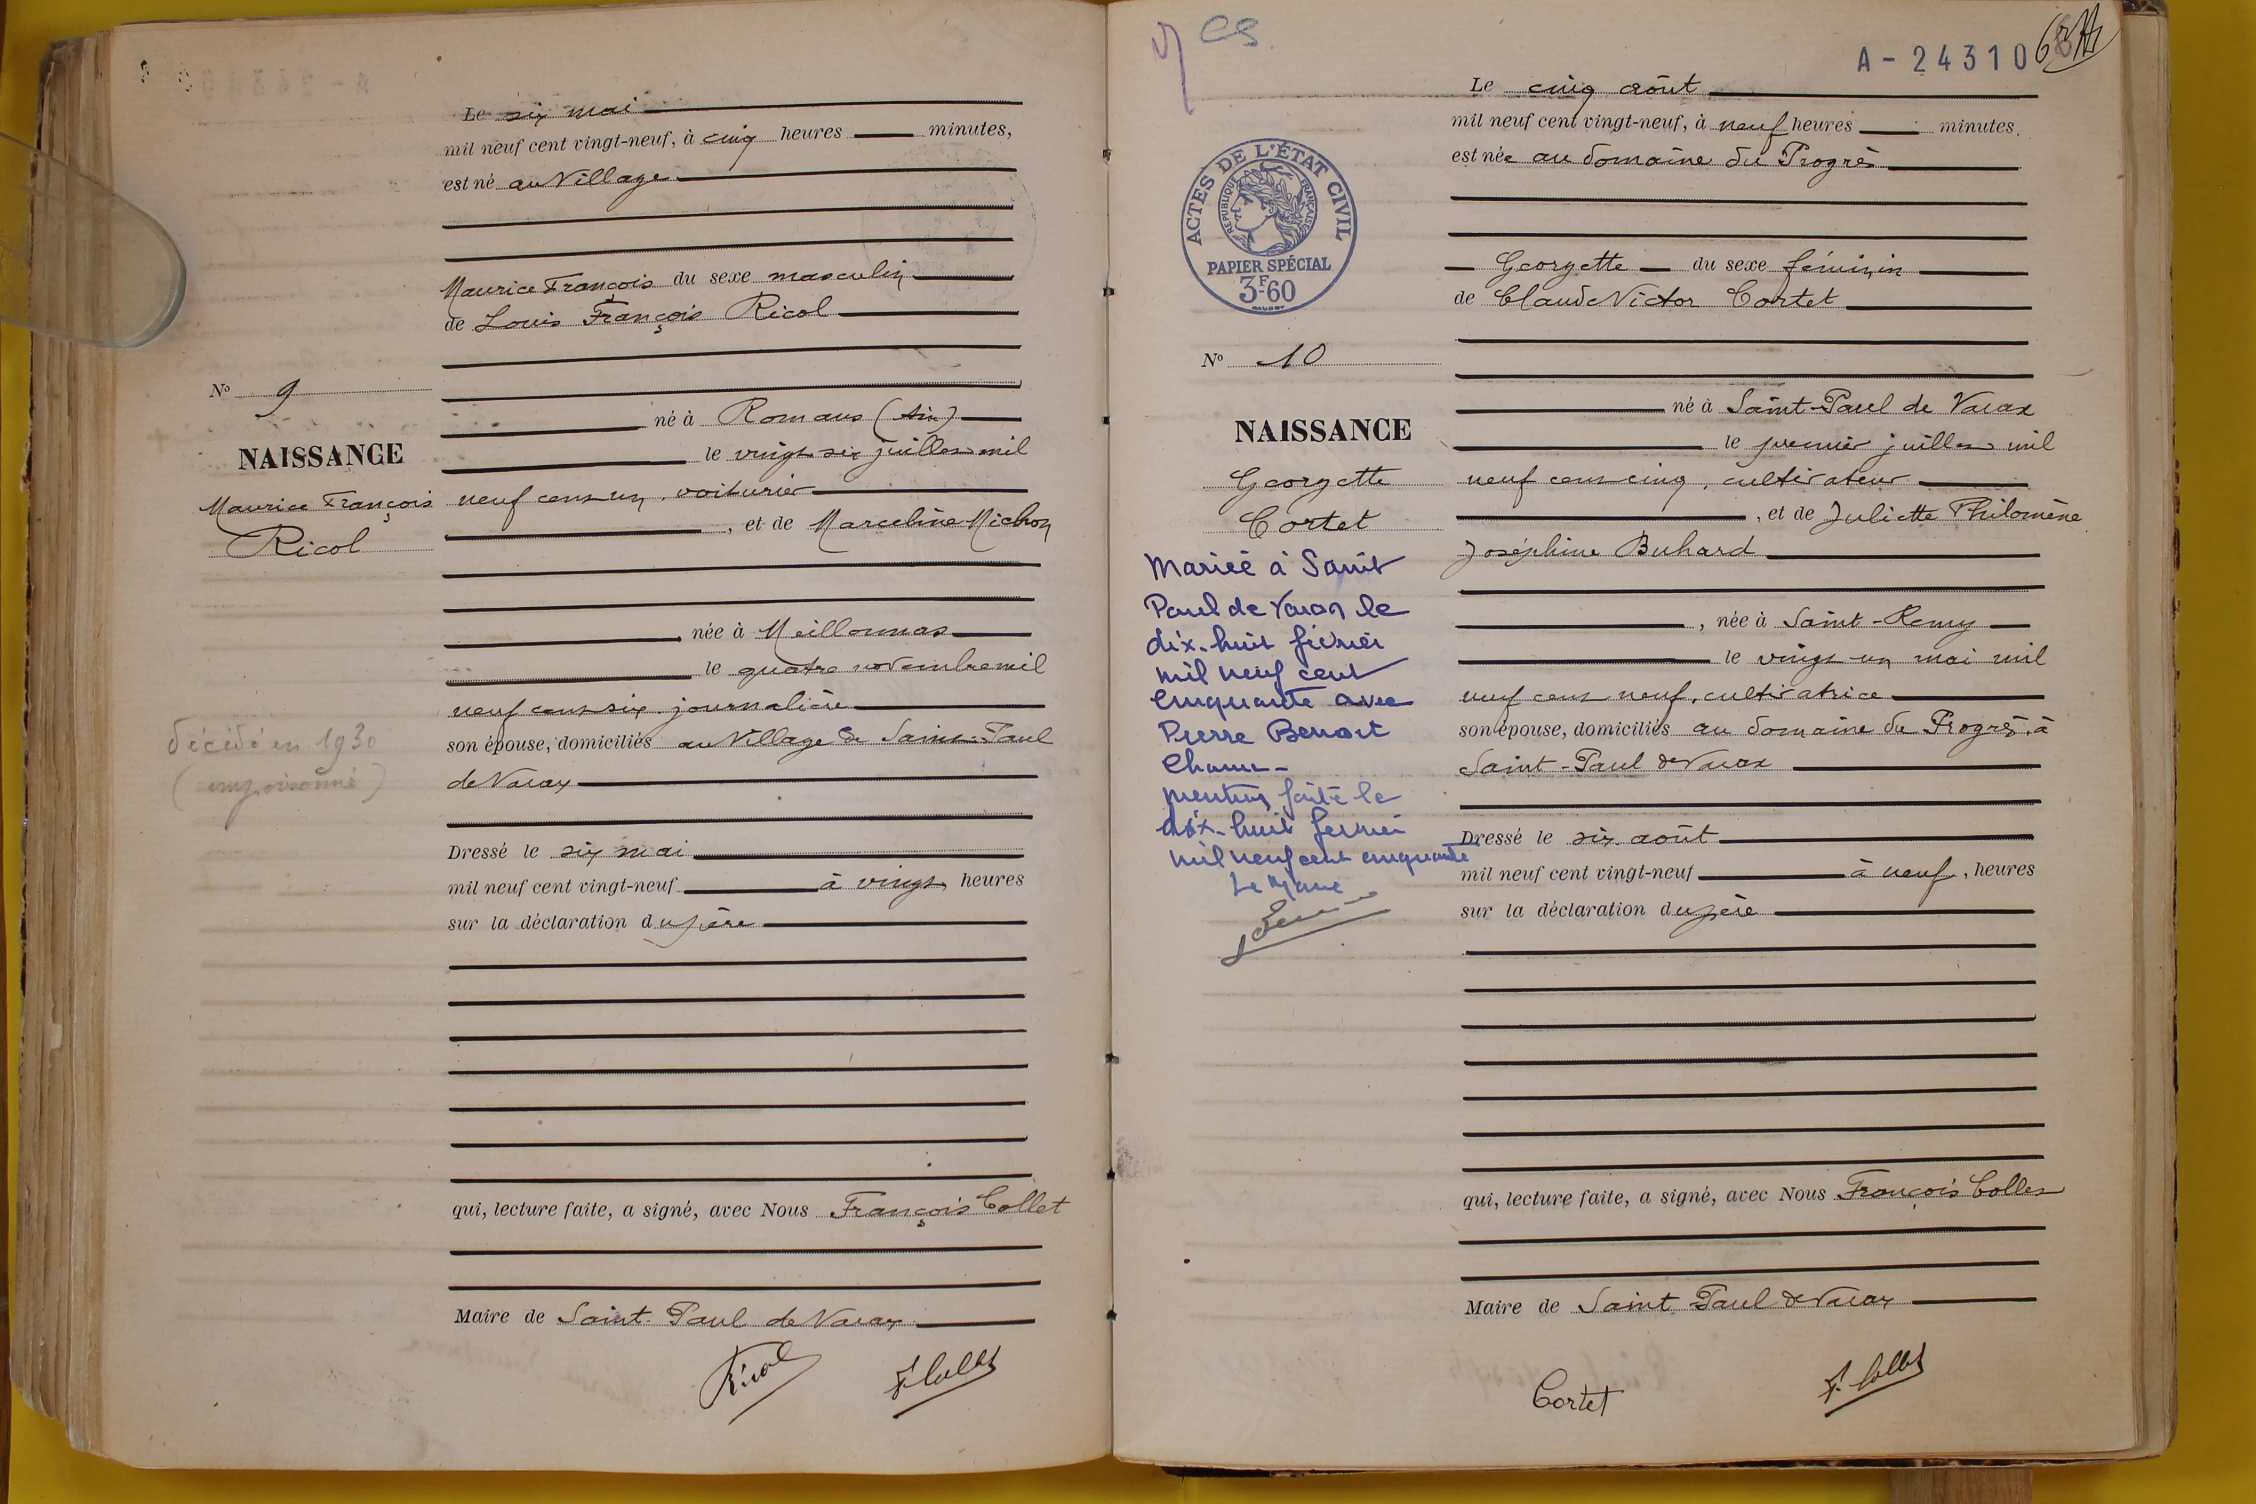 Le six mai
mil neuf cent vingt-neuf, à cinq heures minutes,
est né au Village
Maurice François du sexe masculin
de Louis François Ricol
né à Romans (Ain)
le vingt six juillet mil
neuf cent un, voiturier
, et de Marceline Michon
née à Meillonnas
le quatre novembre mil
neuf cent six, journalière
son épouse, domiciliés au Village de Saint-Paul
de Varax
Dressé le six mai
mil neuf cent vingt-neuf à vingt heures
sur la déclaration du père
qui, lecture faite, a signé, avec Nous François Collet
Maire de Saint-Paul de Varax
Ricol F. Collet
No 9
NAISSANCE
Maurice François
Ricol
décédé en 1930
(empoisonné)
A-24310
Le cinq août
mil neuf cent vingt-neuf, à neuf heures minutes.
est née au domaine du Progrès
Georgette du sexe féminin
de Claude Victor Cortet
né à Saint-Paul de Varax
le premier juillet mil
neuf cent cinq, cultivateur
, et de Juliette Philomène
Joséphine Buhard
, née à Saint-Remy
le vingt un mai mil
neuf cent neuf, cultivatrice
son épouse, domiciliés au domaine du Progrès, à
Saint-Paul de Varax
Dressé le six août
mil neuf cent vingt-neuf à neuf, heures
sur la déclaration du père
qui, lecture faite, a signé, avec Nous François Collet
Maire de Saint Paul de Varax
Cortet F. Collet
ACTES DE L'ÉTAT CIVIL
RÉPUBLIQUE FRANÇAISE
PAPIER SPÉCIAL
3F60
No 10
NAISSANCE
Georgette
Cortet
Mariée à Saint
Paul de Varax le
dix-huit février
mil neuf cent
cinquante avec
Pierre Benoit
mention faite le
dix-huit février
mil neuf cent cinquante
Le Maire